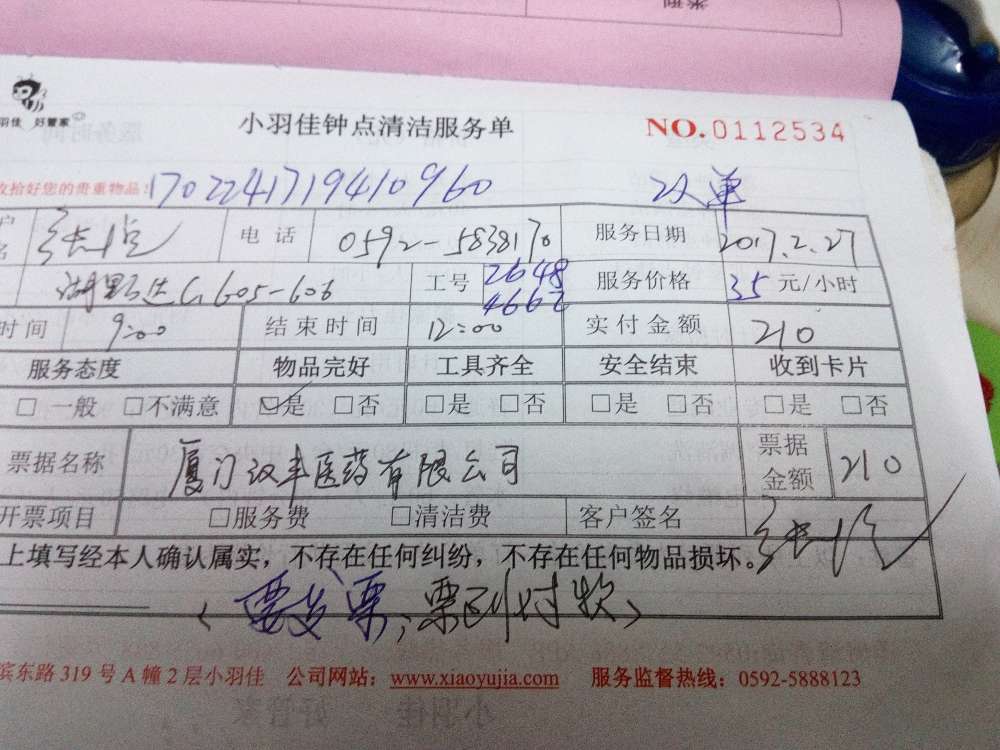 羽佳 好管家
小羽佳钟点清洁服务单 NO.0112534
收拾好您的贵重物品! 1702241719410960 双单
电话 0592-5838170 服务日期 2017.2.27
G605-606 工号 2648 4662 服务价格 35 元/小时
时间 9:00 结束时间 12:00 实付金额 210
服务态度 物品完好 工具齐全 安全结束 收到卡片
□ 一般 □不满意 ☑是 □否 □是 □否 □是 □否 □是 □否
票据名称 厦门汉丰医药有限公司 票据金额 210
开票项目 □服务费 □清洁费 客户签名
上填写经本人确认属实，不存在任何纠纷，不存在任何物品损坏。
(要发票，票到付款)
滨东路 319 号 A 幢 2 层小羽佳 公司网站：www.xiaoyujia.com 服务监督热线：0592-5888123